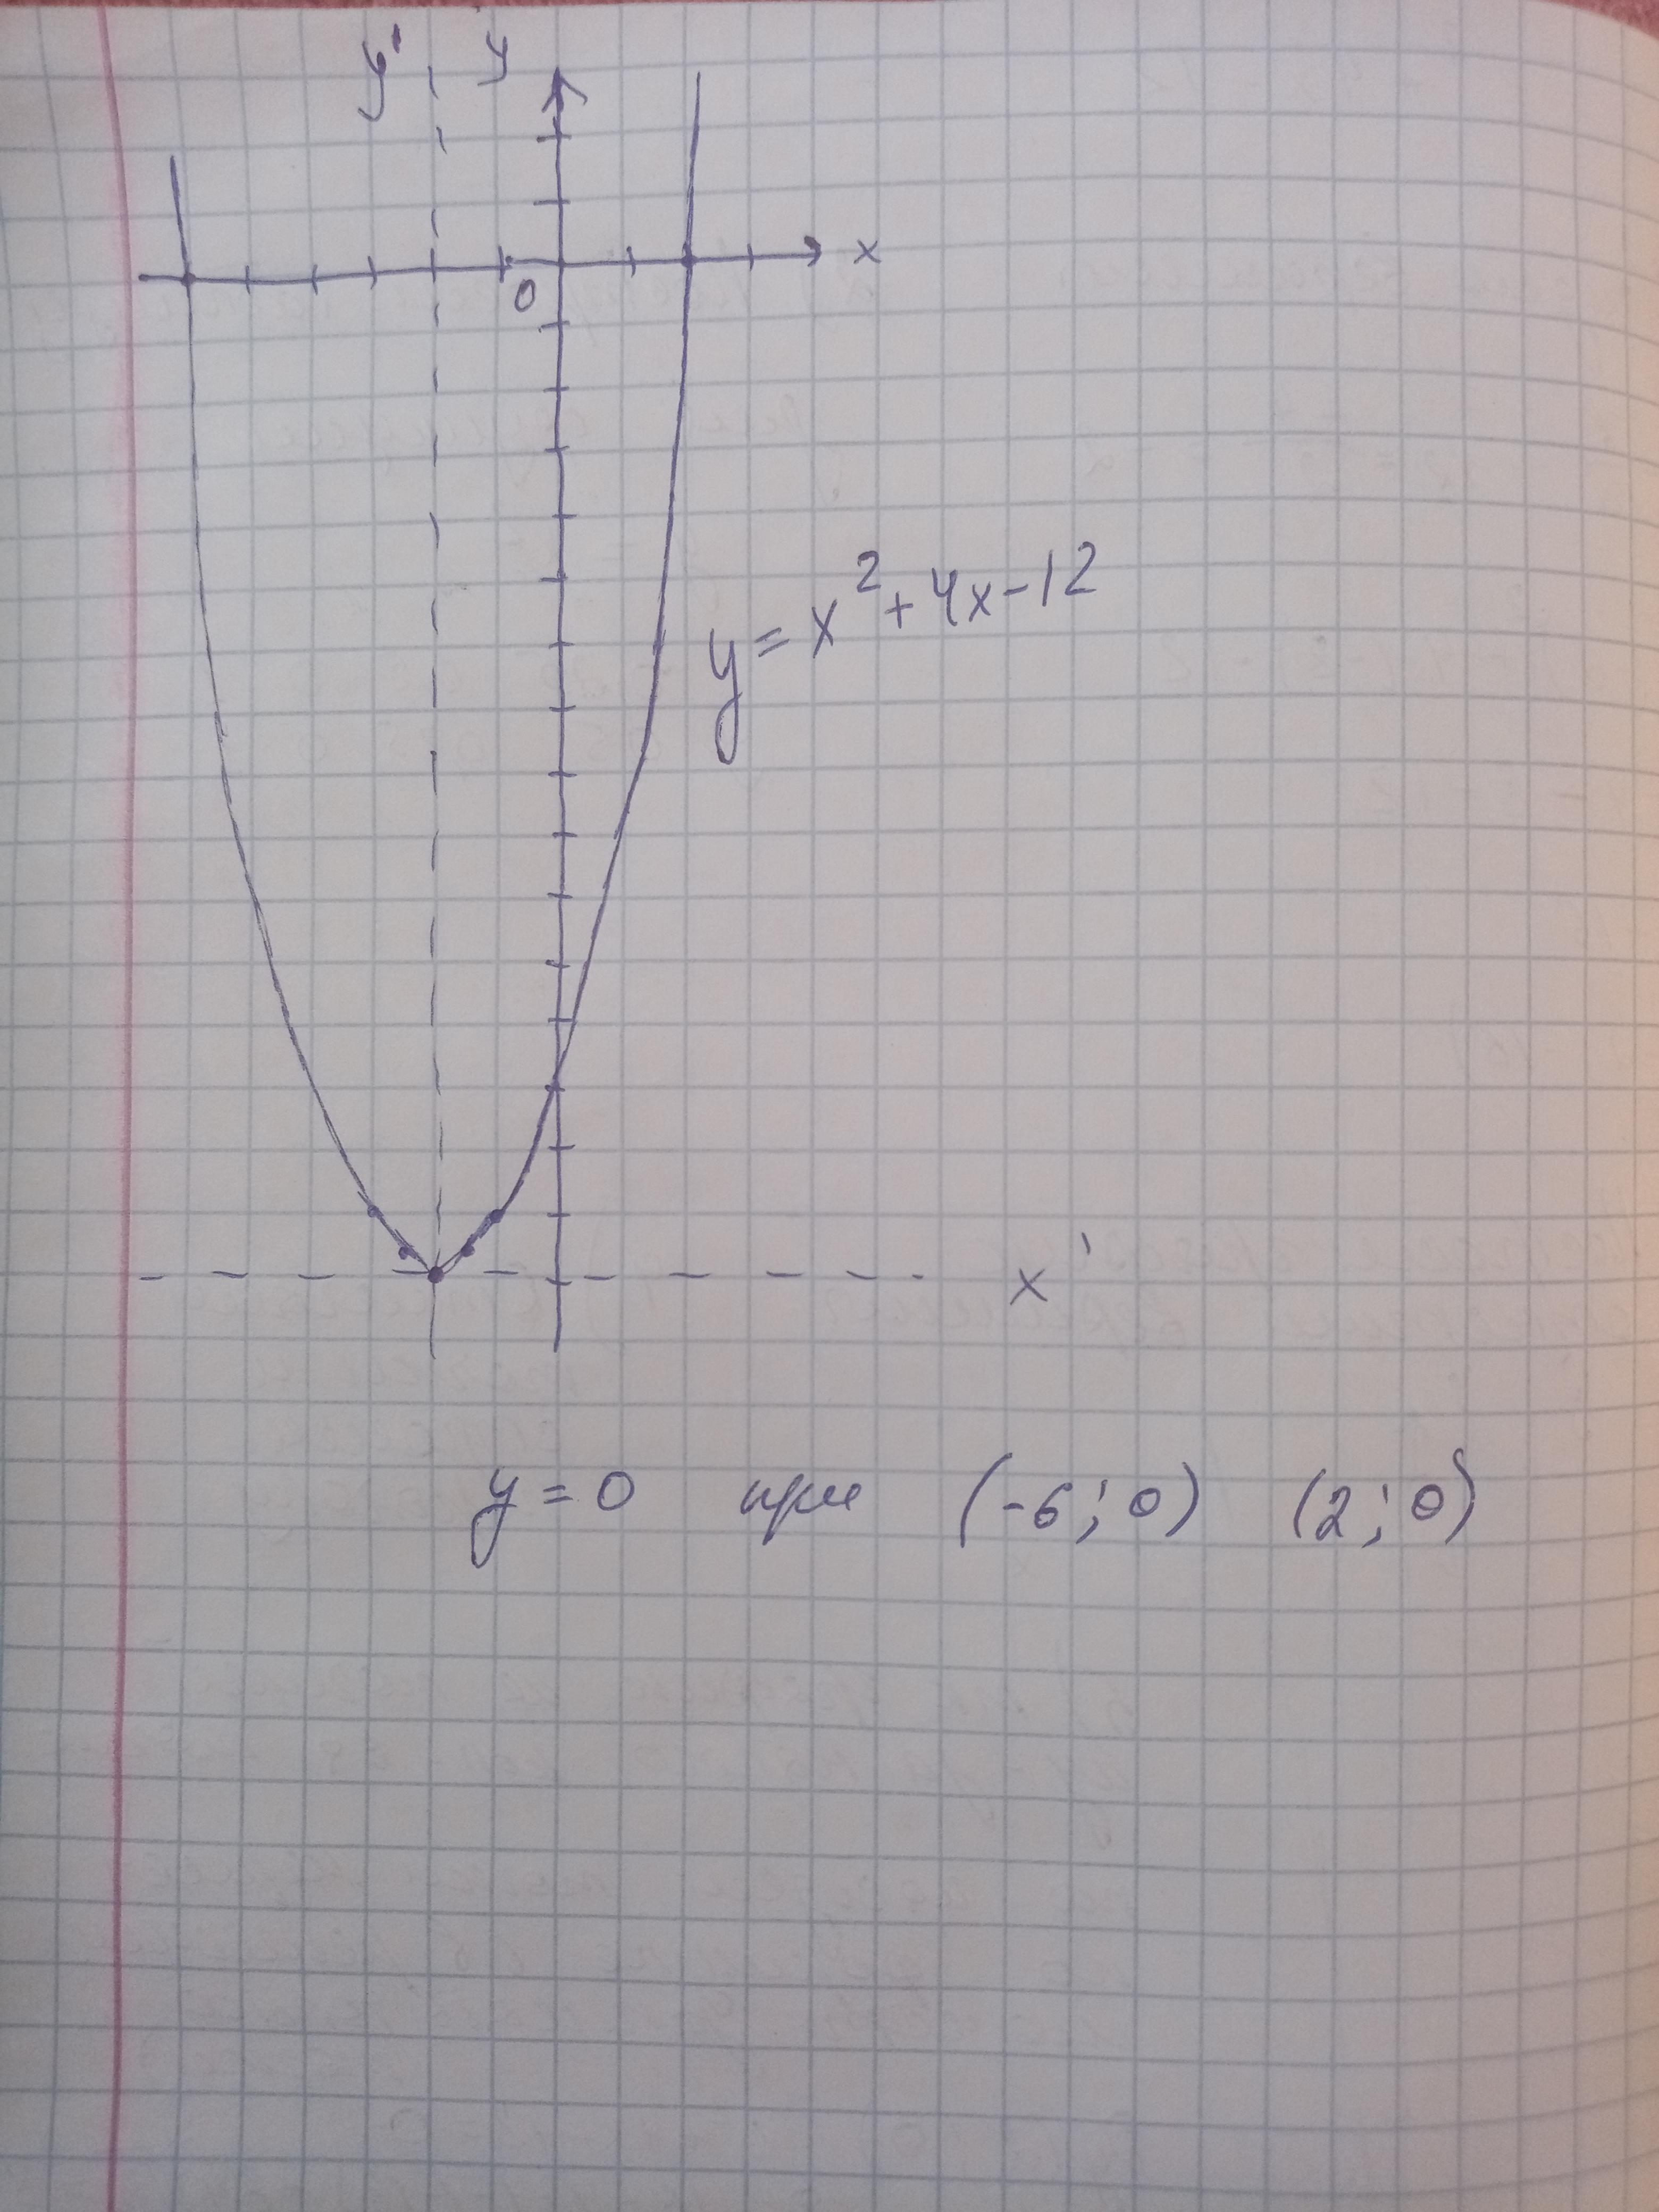 y' y
x
0
y = x² + 4x - 12
x'
y = 0 при (-6; 0) (2; 0)